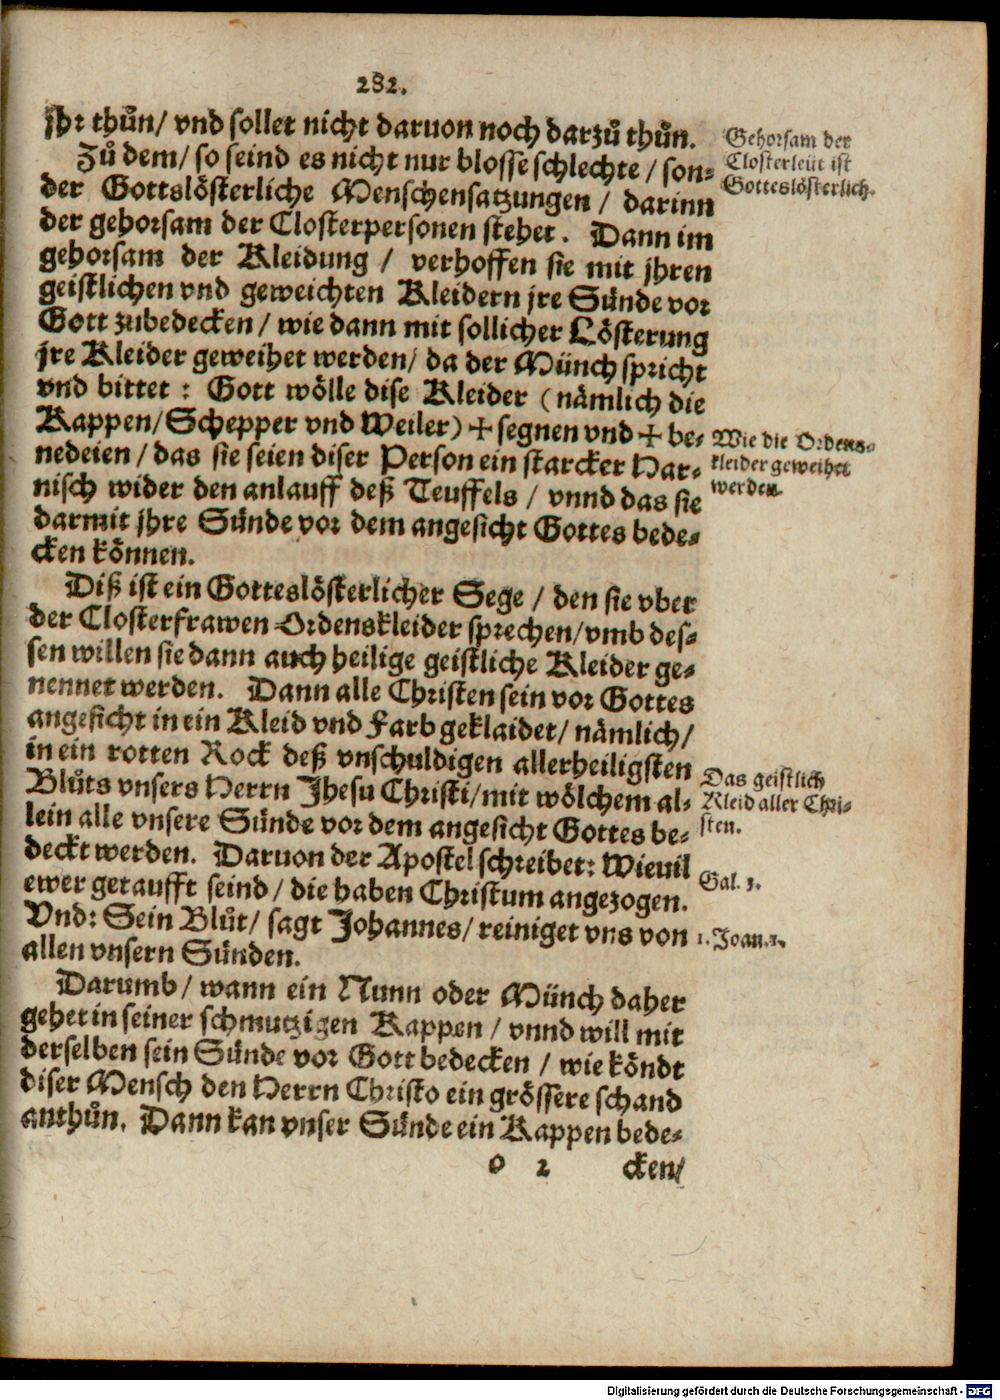 282.
jhr thůn/ vnd sollet nicht daruon noch darzů thůn.
Zů dem/ so seind es nicht nur blosse schlechte/ son-
der Gottslösterliche Menschensatzungen/ darinn
der gehorsam der Closterpersonen stehet. Dann im
gehorsam der Kleidung/ verhoffen sie mit jhren
geistlichen vnd geweichten Kleidern jre Sünde vor
Gott zubedecken/ wie dann mit sollicher Lösterung
jre Kleider geweihet werden/ da der Münch spricht
vnd bittet: Gott wölle dise Kleider (nämlich die
Kappen/ Schepper vnd Weiler) ✢ segnen vnd ✢ be-
nedeien/ das sie seien diser Person ein starcker Har-
nisch wider den anlauff deß Teuffels/ vnnd das sie
darmit jhre Sünde vor dem angesicht Gottes bede-
cken können.
Diß ist ein Gotteslösterlicher Sege/ den sie vber
der Closterfrawen Ordenskleider sprechen/ vmb des-
sen willen sie dann auch heilige geistliche Kleider ge-
nennet werden. Dann alle Christen sein vor Gottes
angesicht in ein Kleid vnd Farb geklaidet/ nämlich/
in ein rotten Rock deß vnschuldigen allerheiligsten
Blůts vnsers Herrn Jhesu Christi/ mit wölchem al-
lein alle vnsere Sünde vor dem angesicht Gottes be-
deckt werden. Daruon der Apostel schreibet: Wieuil
ewer getaufft seind/ die haben Christum angezogen.
Vnd: Sein Blůt/ sagt Johannes/ reiniget vns von
allen vnsern Sünden.
Darumb/ wann ein Nunn oder Münch daher
gehet in seiner schmutzigen Kappen/ vnnd will mit
derselben sein Sünde vor Gott bedecken/ wie köndt
diser Mensch den Herrn Christo ein grössere schand
anthůn. Dann kan vnser Sünde ein Kappen bede-
o 2 cken/
Gehorsam der
Closterleüt ist
Gotteslösterlich.
Wie die Ordens-
kleider geweihet
werden.
Das geistlich
Kleid aller Chri-
sten.
Gal. 3.
1. Joan. 1.
Digitalisierung gefördert durch die Deutsche Forschungsgemeinschaft - DFG